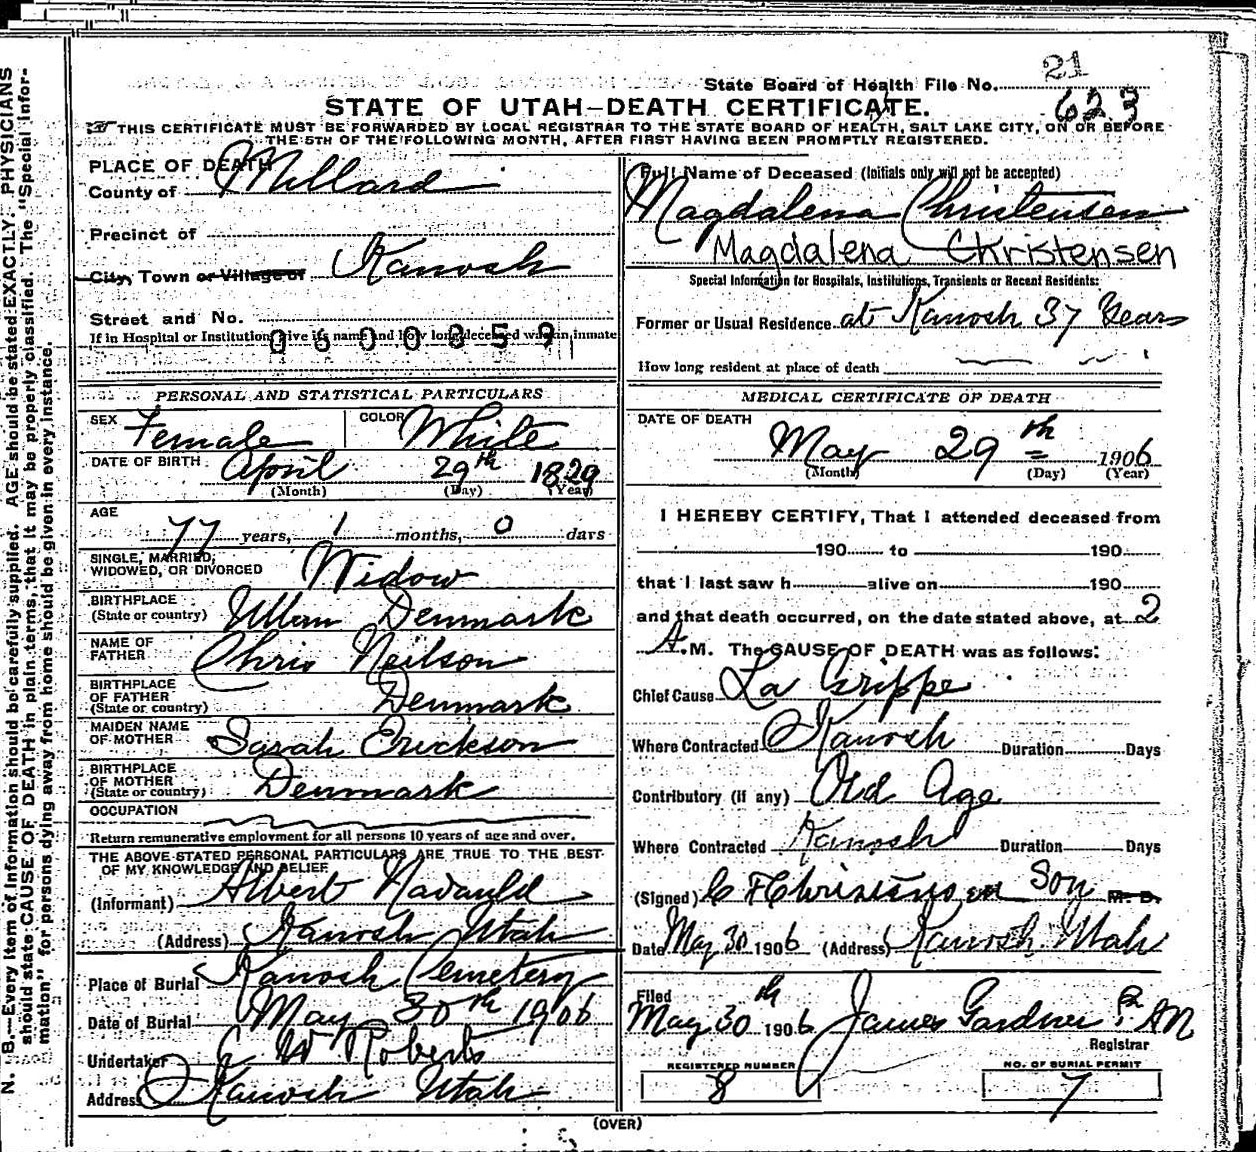 21
State Board of Health File No. 623
STATE OF UTAH—DEATH CERTIFICATE.
THIS CERTIFICATE MUST BE FORWARDED BY LOCAL REGISTRAR TO THE STATE BOARD OF HEALTH, SALT LAKE CITY, ON OR BEFORE
THE 5TH OF THE FOLLOWING MONTH, AFTER FIRST HAVING BEEN PROMPTLY REGISTERED.
PLACE OF DEATH
County of Millard
Precinct of
City, Town or Village of Kanosh
Street and No.
If in Hospital or Institution, give its name and how long deceased was an inmate
0600859
PERSONAL AND STATISTICAL PARTICULARS
SEX Female COLOR White
DATE OF BIRTH April 29th 1829
(Month) (Day) (Year)
AGE
77 years, 1 months, 0 days
SINGLE, MARRIED,
WIDOWED, OR DIVORCED Widow
BIRTHPLACE
(State or country) Denmark
NAME OF
FATHER Chris Neilson
BIRTHPLACE
OF FATHER
(State or country) Denmark
MAIDEN NAME
OF MOTHER Sarah Erickson
BIRTHPLACE
OF MOTHER
(State or country) Denmark
OCCUPATION
Return remunerative employment for all persons 10 years of age and over.
THE ABOVE STATED PERSONAL PARTICULARS ARE TRUE TO THE BEST
OF MY KNOWLEDGE AND BELIEF
(Informant) Albert
(Address) Kanosh Utah
Place of Burial Kanosh Cemetery
Date of Burial May 30th 1906
Undertaker C W Roberts
Address Kanosh Utah
Full Name of Deceased (Initials only will not be accepted)
Magdalena Christensen
Magdalena Christensen
Special Information for Hospitals, Institutions, Transients or Recent Residents:
Former or Usual Residence at Kanosh 37 Years
How long resident at place of death
MEDICAL CERTIFICATE OF DEATH
DATE OF DEATH
May 29th 1906
(Month) (Day) (Year)
I HEREBY CERTIFY, That I attended deceased from
190 to 190
that I last saw h alive on 190
and that death occurred, on the date stated above, at 2
A.M. The CAUSE OF DEATH was as follows:
Chief Cause La Grippe
Where Contracted Kanosh Duration Days
Contributory (if any) Old Age
Where Contracted Kanosh Duration Days
(Signed) C F Christensen Son M. D.
Date May 30 1906 (Address) Kanosh, Utah
Filed
May 30th 1906 James Gardner
Registrar
REGISTERED NUMBER NO. OF BURIAL PERMIT
8 7
(OVER)
N. B.—Every item of information should be carefully supplied. AGE should be stated EXACTLY. PHYSICIANS
should state CAUSE OF DEATH in plain terms, that it may be properly classified. The "Special Infor-
mation" for persons dying away from home should be given in every instance.